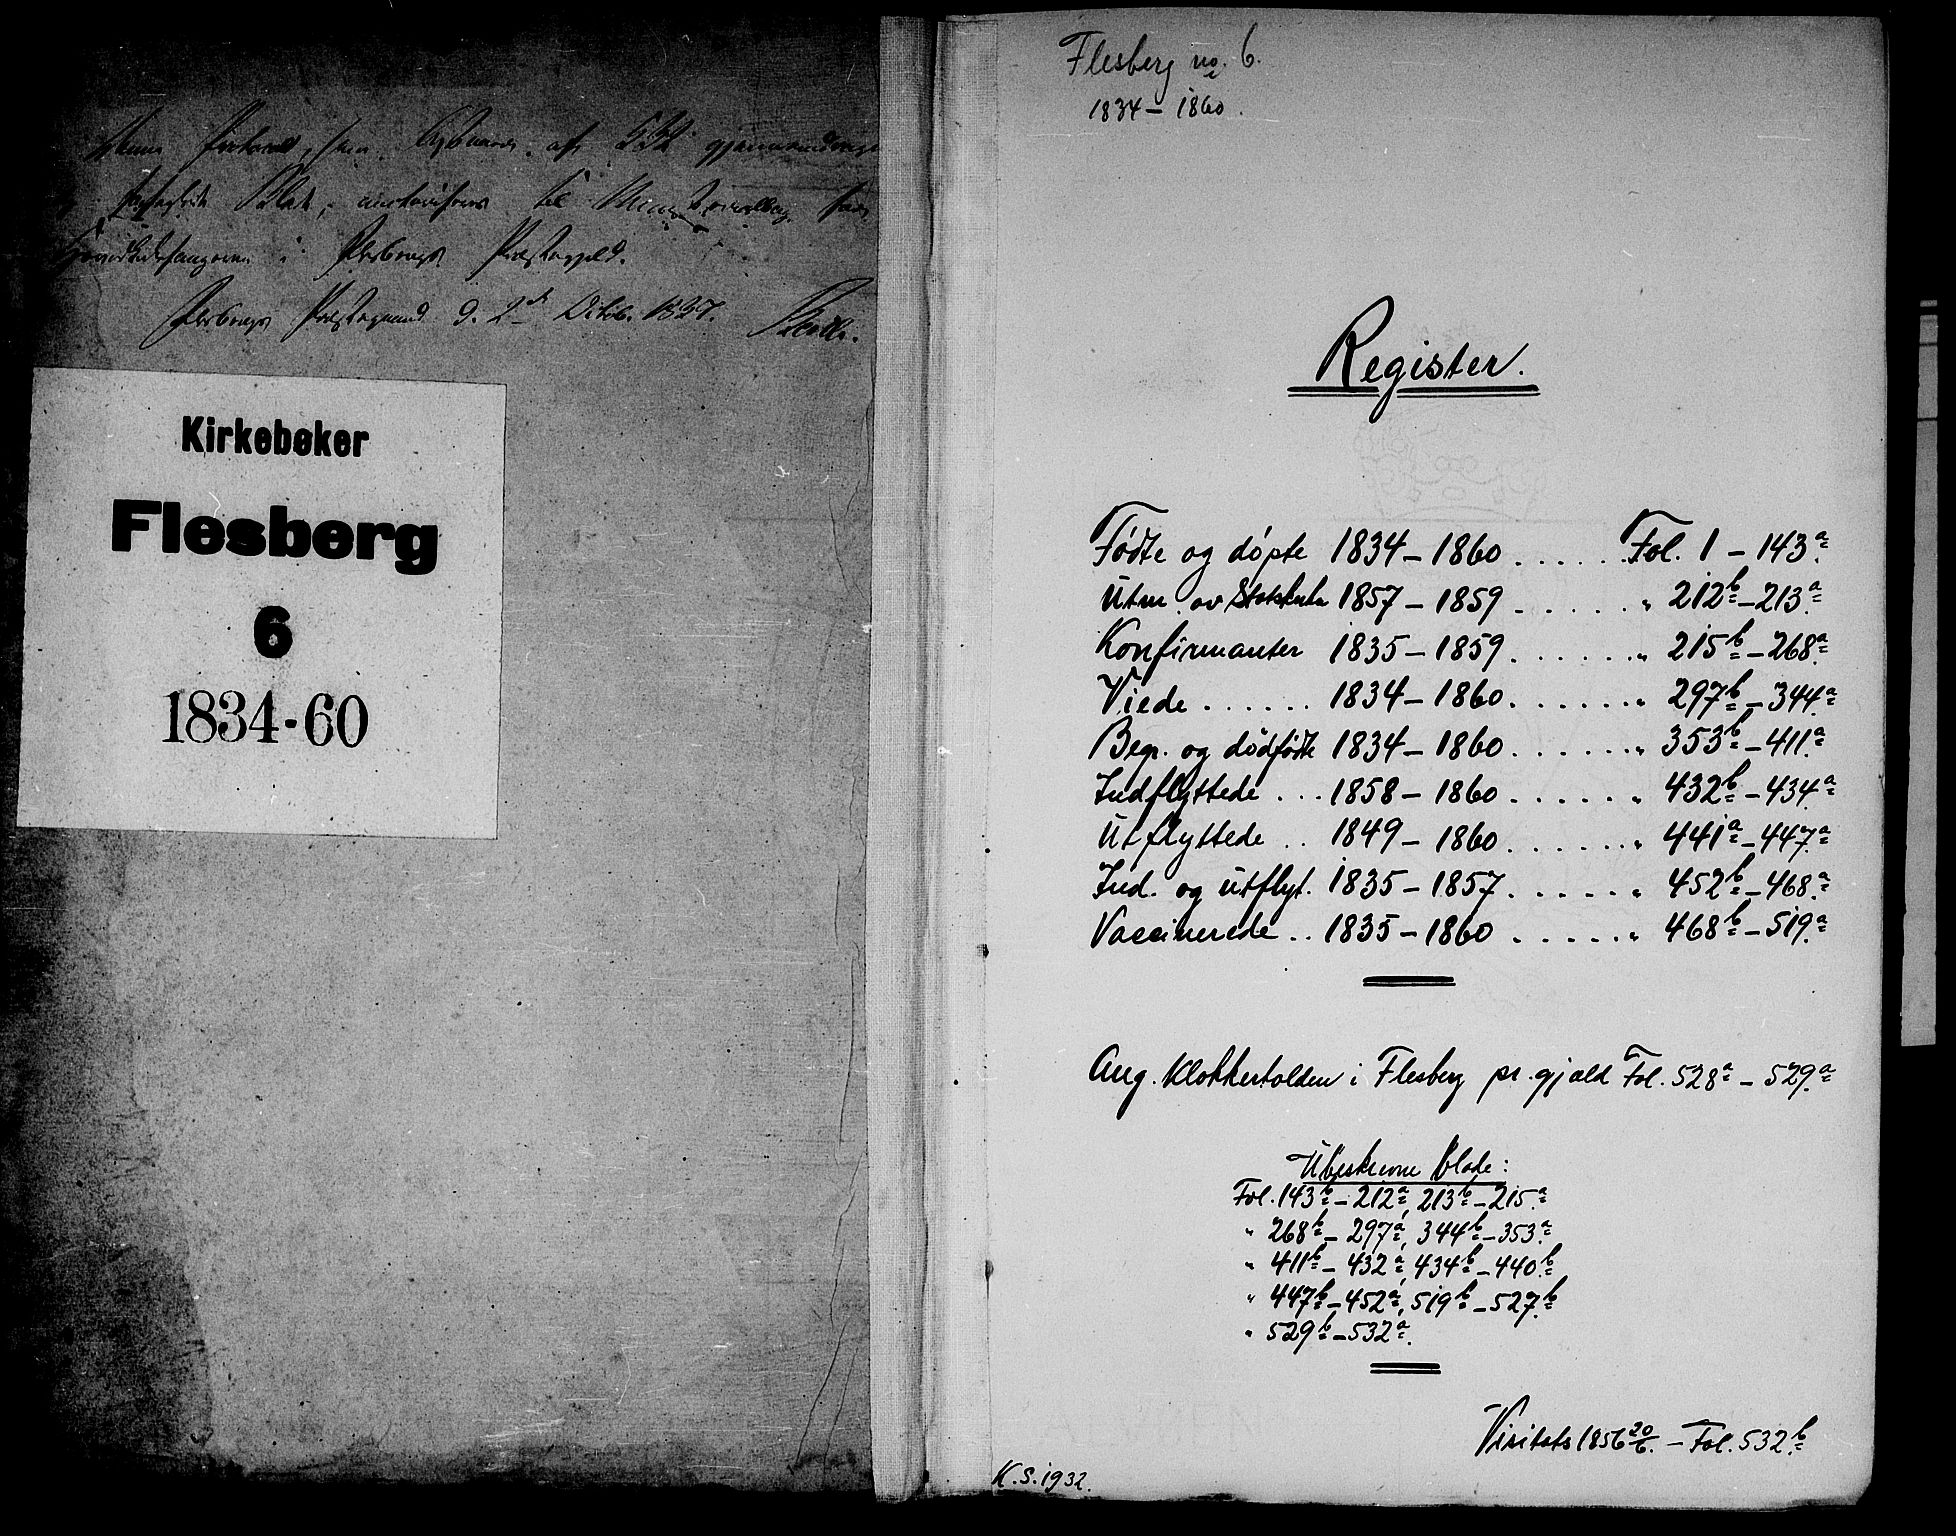 af 532
til
i Flesbergs Præstegjeld.
Flesbergs Præstegaard d. 2den Octob. 1837.
Kirkebøker
Flesberg
6
1834-60
Flesberg no. 6.
1834 – 1860.
Register.
Fødte og døpte 1834 – 1860 . . . . . . Fol. 1 – 143a
Utm. av Statskirken 1857 – 1859 . . . . . . " 212b – 213a
Konfirmanter 1835 – 1859 . . . . . . " 215b – 268a
Viede . . . . . . 1834 – 1860 . . . . . . " 297b – 344a
Begr. og dödfødte 1834 – 1860 . . . . . . " 353b – 411a
Indflyttede . . . 1858 – 1860 . . . . . . " 432b – 434a
Utflyttede . . 1849 – 1860 . . . . . . " 441a – 447a
Ind. og utflyt. 1835 – 1857 . . . . . . " 452b – 468a
Vaccinerede . . 1835 – 1860 . . . . . . " 468b – 519a
Ang. Klokkertolden i Flesberg pr.gjæld Fol. 528a – 529a
Ubeskrevne blade:
Fol. 143b – 212a, 213b – 215a
" 268b – 297a, 344b – 353a
" 411b – 432a, 434b – 440b
" 447b – 452a, 519b – 527b
" 529b – 532a.
Visitats 1856 20/6. – Fol. 532b
K.S. 1932.